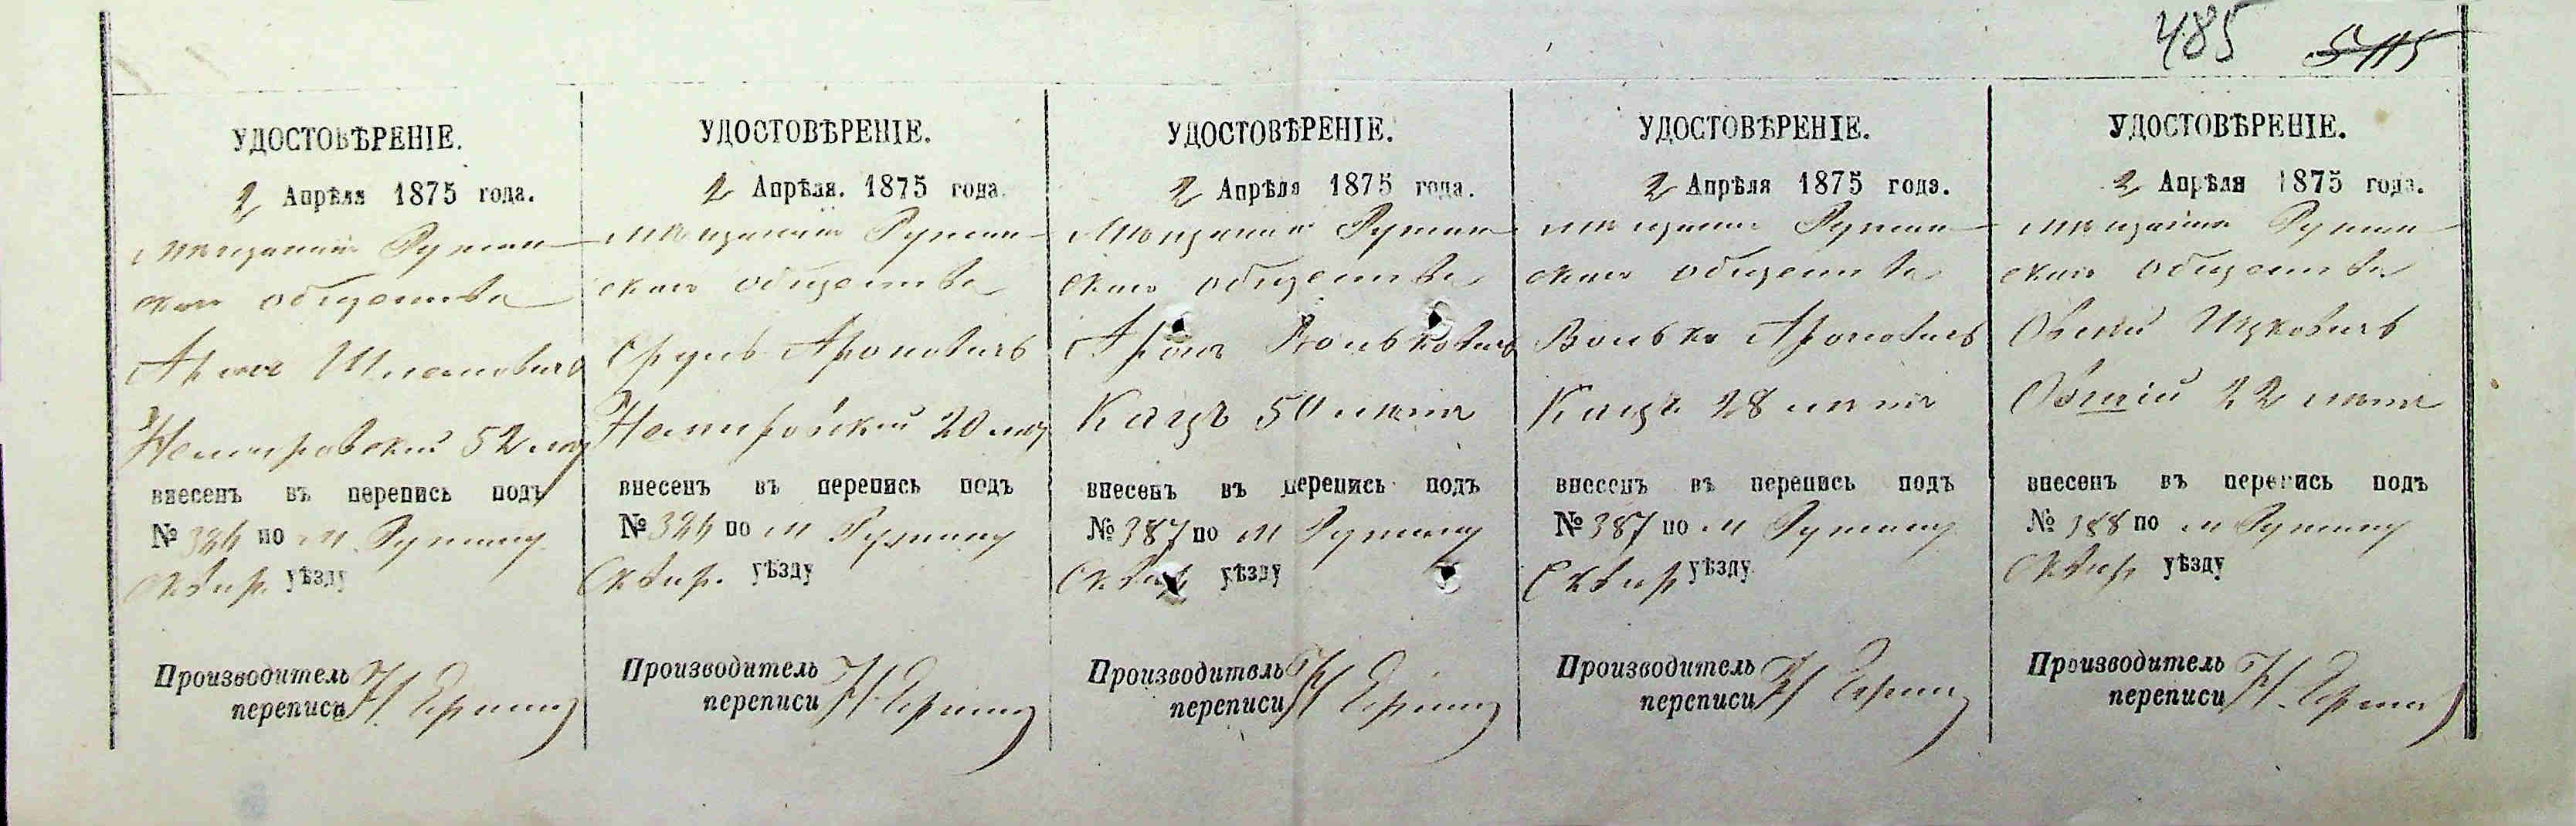 485 5115
УДОСТОВѢРЕНІЕ.
2 Апрѣля 1875 года.
мѣщанинъ Ружин-
скаго общества
Аронъ Шлемовичъ
Немировскій 52 лѣтъ
внесенъ въ перепись подъ
№ по м. Ружину
Сквир. уѣзду
Производитель
переписи Н.
УДОСТОВѢРЕНІЕ.
2 Апрѣля. 1875 года
мѣщанинъ Ружин-
скаго общества
Сруль Ароновичъ
Немировскій 20 лѣтъ
внесенъ въ перепись подъ
№ по м Ружину
Сквир. уѣзду
Производитель
переписи Н.
УДОСТОВѢРЕНІЕ.
2 Апрѣля 1875 года.
Мѣщанинъ Ружин
скаго общества
Аронъ Вольковичъ
Кацъ 50 лѣтъ
внесенъ въ перепись подъ
№ 387 по м Ружину
Сквир уѣзду
Производитель
переписи Н
УДОСТОВѢРЕНІЕ.
2 Апрѣля 1875 года.
мѣщанинъ Ружин-
скаго общества
Волько Ароновичъ
Кацъ 28 лѣтъ
внесенъ въ перепись подъ
№ 387 по м Ружину
Сквир уѣзду
Производитель
переписи Н
УДОСТОВѢРЕНІЕ.
2 Апрѣля 1875 года.
мѣщанинъ Ружин-
скаго общества
Овшій Ицковичъ
Овшій 22 лѣтъ
внесенъ въ перепись подъ
№ 388 по м Ружину
Сквир уѣзду
Производитель
переписи Н.